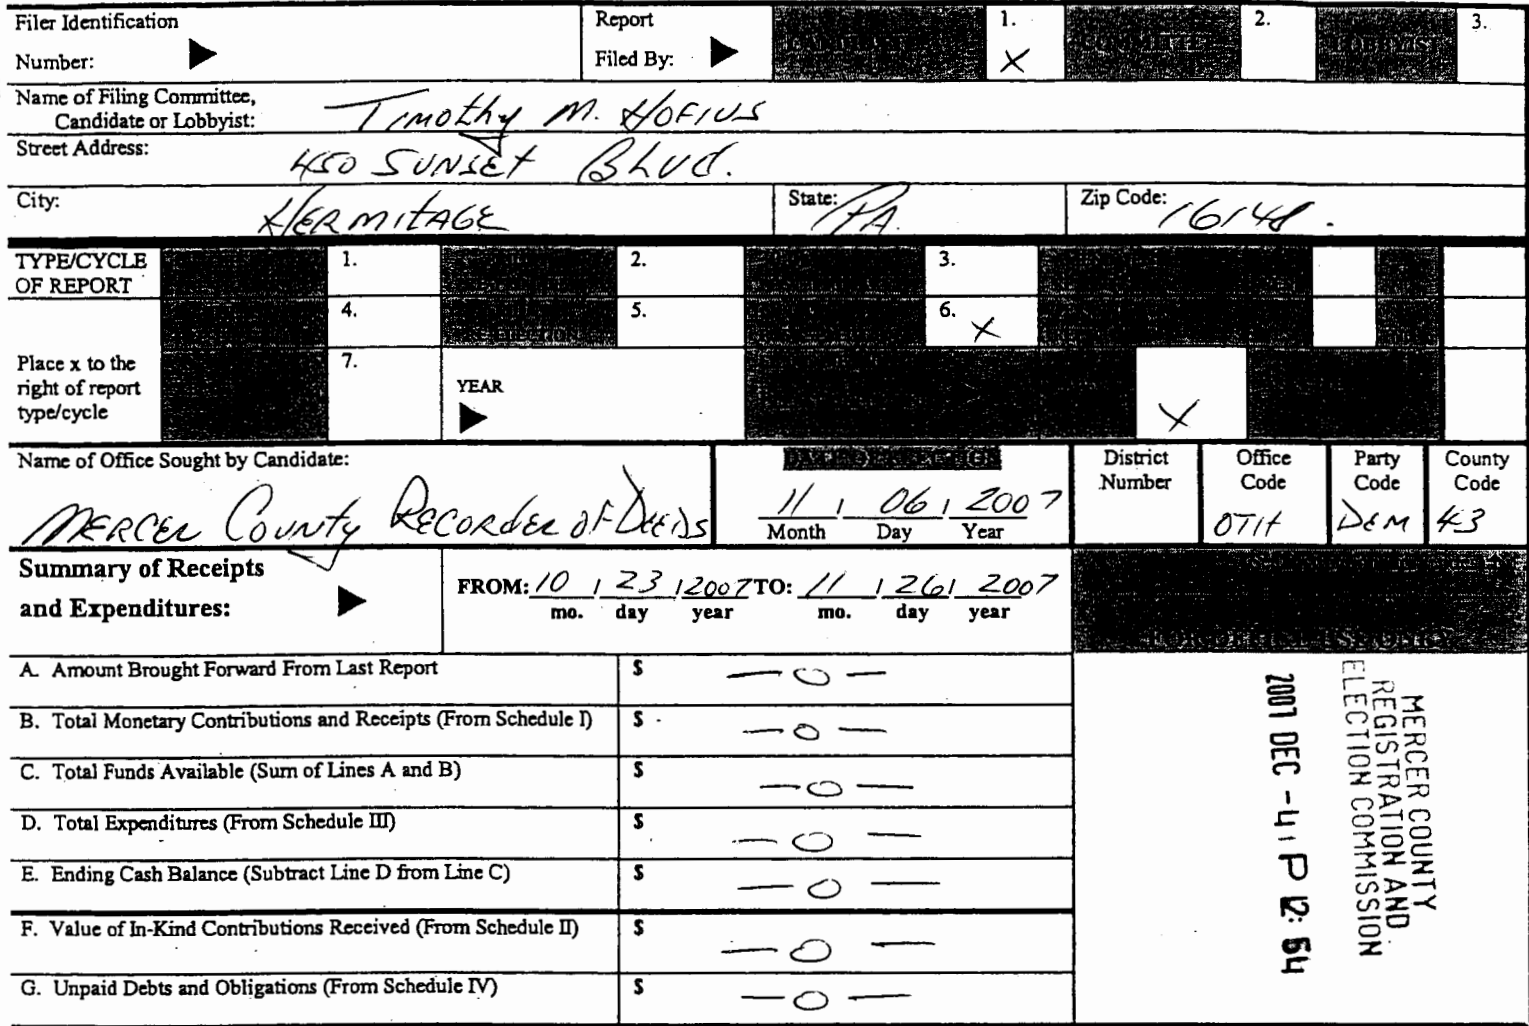 Filer Identification
Number:
Report
Filed By:
1.
X
2.
3.
Name of Filing Committee,
Candidate or Lobbyist:
Timothy M. Hofius
Street Address:
450 Sunset Blvd.
City:
Hermitage
State:
PA.
Zip Code:
16148.
TYPE/CYCLE
OF REPORT
1.
2.
3.
4.
5.
6.
X
Place x to the
right of report
type/cycle
7.
YEAR
X
Name of Office Sought by Candidate:
Mercer County Recorder of Deeds
DATE OF ELECTION
11 06 2007
Month Day Year
District
Number
Office
Code
OTH
Party
Code
DEM
County
Code
43
Summary of Receipts
and Expenditures:
FROM: 10 23 2007 TO: 11 26 2007
mo. day year mo. day year
A. Amount Brought Forward From Last Report $ — 0 —
B. Total Monetary Contributions and Receipts (From Schedule I) $ — 0 —
C. Total Funds Available (Sum of Lines A and B) $ — 0 —
D. Total Expenditures (From Schedule III) $ — 0 —
E. Ending Cash Balance (Subtract Line D from Line C) $ — 0 —
F. Value of In-Kind Contributions Received (From Schedule II) $ — 0 —
G. Unpaid Debts and Obligations (From Schedule IV) $ — 0 —
MERCER COUNTY
REGISTRATION AND
ELECTION COMMISSION
2007 DEC -4 P 12:54